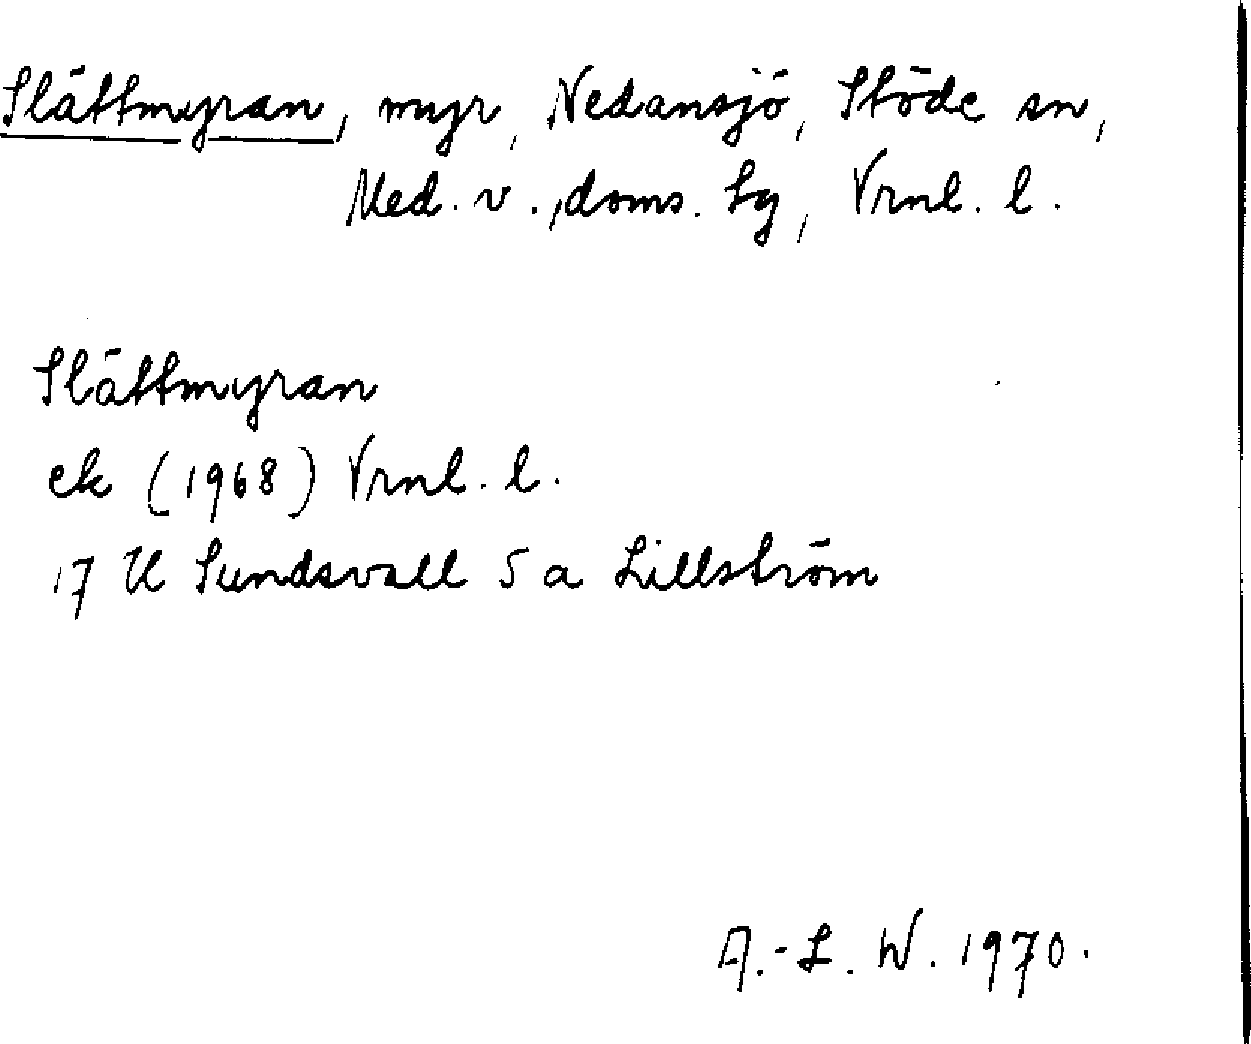 Slåttmyran, myr, Nedansjö, Stöde sn,
Med. v., doms. sg, Vrnl. l.
Slåttmyran
ek (1968) Vrnl. l.
17 H Sundsvall 5 a Lillström
A.-L. W. 1970.